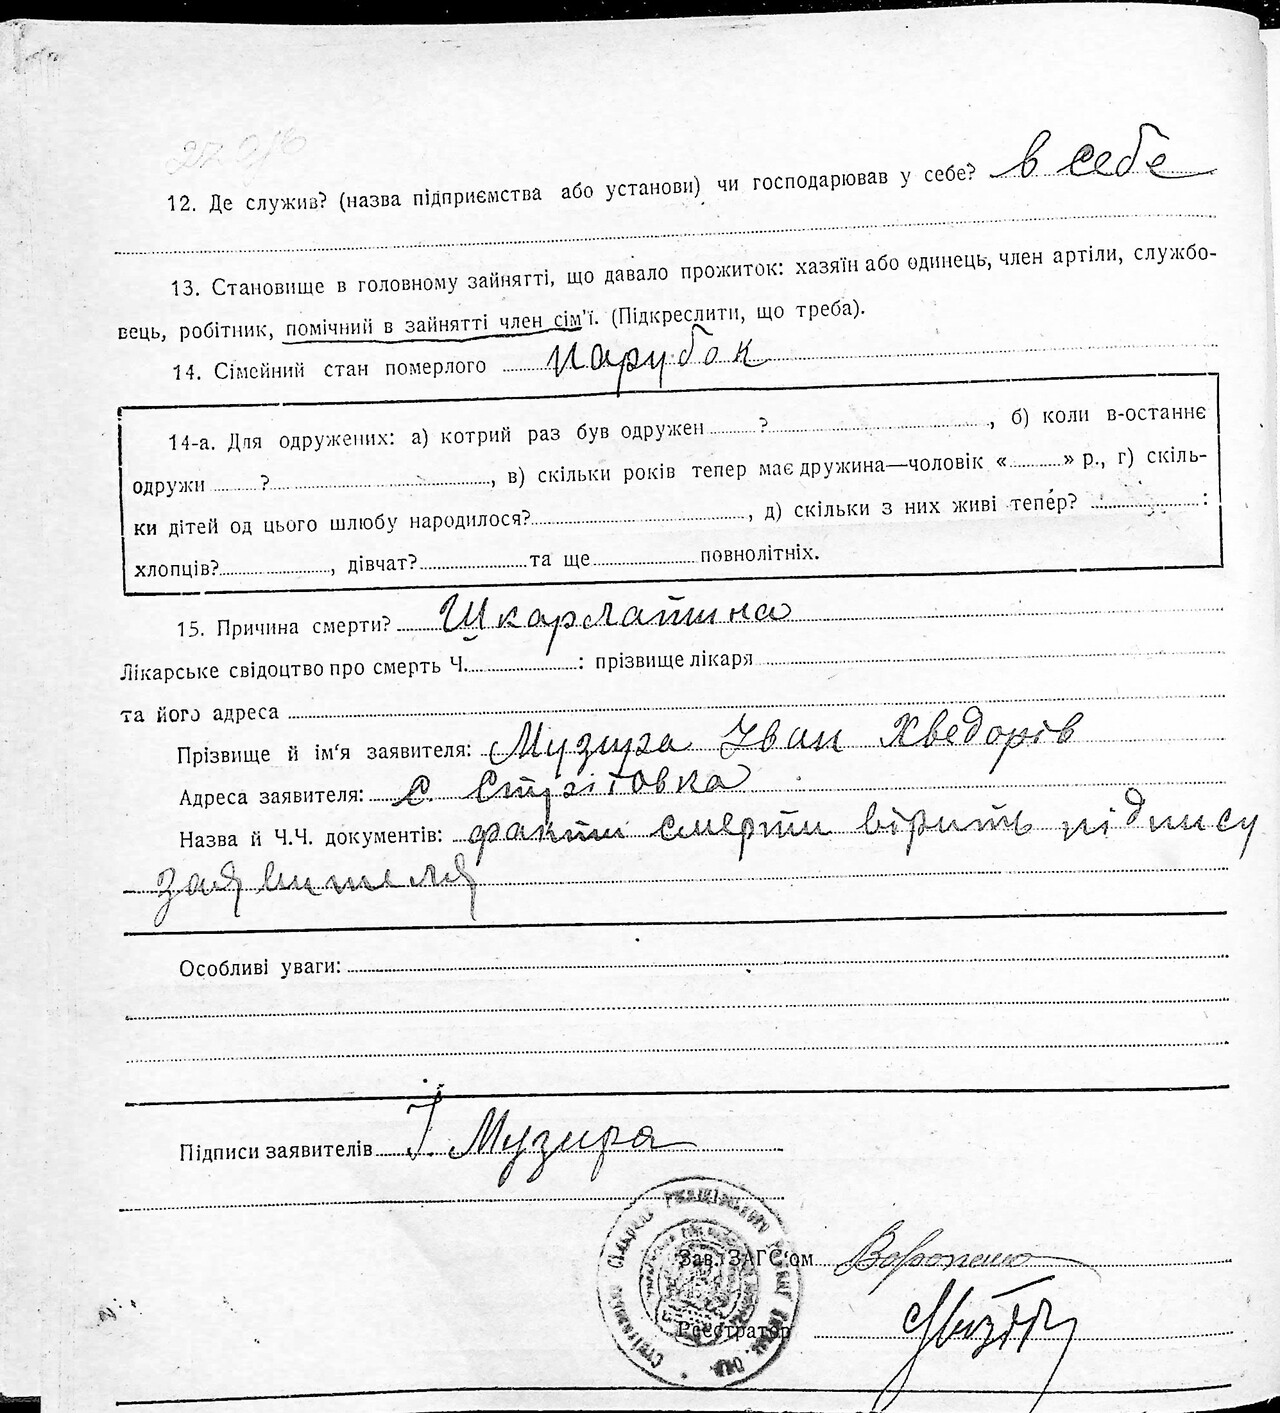 12. Де служив? (назва підприємства або установи) чи господарював у себе? в себе
13. Становище в головному зайнятті, що давало прожиток: хазяїн або одинець, член артіли, службо-
вець, робітник, помічний в зайнятті член сім'ї. (Підкреслити, що треба).
14. Сімейний стан померлого парубок
14-а. Для одружених: а) котрий раз був одружен ? , б) коли в-останнє
одружи ? , в) скільки років тепер має дружина—чоловік « » р., г) скіль-
ки дітей од цього шлюбу народилося? , д) скільки з них живі тепер? :
хлопців? , дівчат? та ще повнолітніх.
15. Причина смерти? Шкарлатина
Лікарське свідоцтво про смерть Ч. : прізвище лікаря
та його адреса
Прізвище й ім'я заявителя: Музира Іван Хведорів
Адреса заявителя: с. Стрітовка
Назва й Ч.Ч. документів: факт смерти вірить підпису
заявителя
Особливі уваги:
Підписи заявителів І. Музира
Зав. ЗАГС'ом
Реєстратор